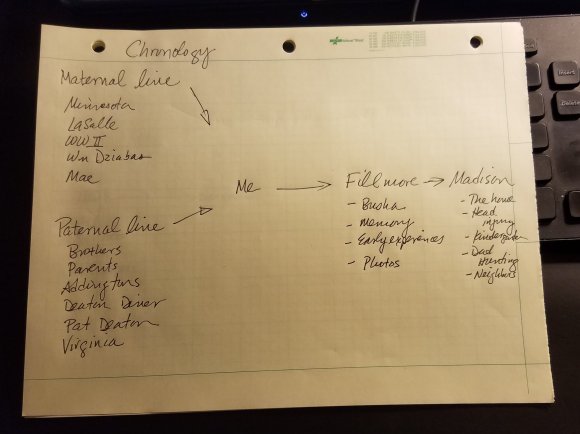 Chronology
Maternal line
Minnesota
LaSalle
WW II
Wm Dziabas
Mae
Paternal line
Brothers
Parents
Addingtons
Deaton Diner
Pat Deaton
Virginia
Me
Fillmore
- Busha
- Memory
- Early experiences
- Photos
Madison
- The house
- Head
injury
- Kindergarten
- Dad
Hunting
- Neighbors
Insert
Delete